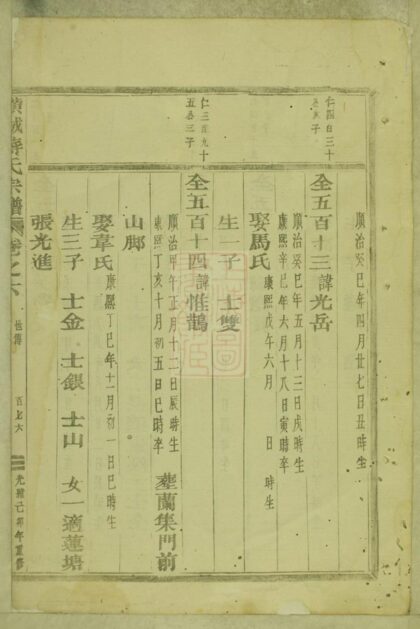 順治癸巳年四月廿七日丑時生
仁四百三十
子
仝五百十三諱光岳
順治癸巳年五月十三日戌時生
康熙辛巳年六月十八日寅時卒
娶馬氏
康熙戊午六月 日 時生
生一子 士雙
仁三百九十
五長三子
仝五百十四諱惟鵲
順治甲午正月十二日辰時生
康熙丁亥十月初五日巳時卒
葬蘭集門前
山脚
娶韋氏
康熙丁巳年十二月初一日巳時生
生三子 士金 士銀 士山 女一適蓮塘
張光進
氏宗譜
卷之六
百七六
光緒己卯年重修